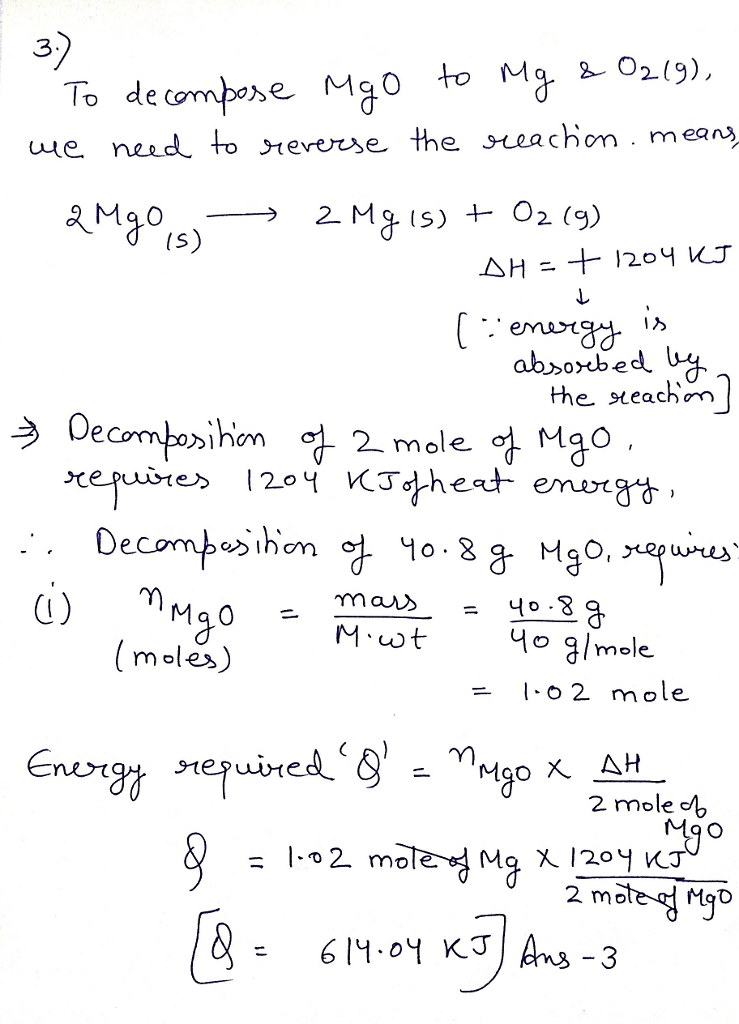 3.)
To decompose MgO to Mg & O2(g),
we need to reverse the reaction. means,
2 MgO(s) → 2 Mg(s) + O2(g)
ΔH = + 1204 KJ
↓
[∵ energy is
absorbed by
the reaction]
⇒ Decomposition of 2 mole of MgO,
requires 1204 KJ of heat energy,
∴ Decomposition of 40.8 g MgO, requires:
(i) nMgO = mass / M.wt = 40.8 g / 40 g/mole
(moles)
= 1.02 mole
Energy required 'Q' = nMgO x ΔH / 2 mole of MgO
Q = 1.02 mole of Mg x 1204 KJ / 2 mole of MgO
[Q = 614.04 KJ] Ans - 3